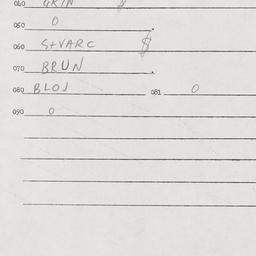 040 GRIN $
050 0
060 S+VARC $
070 BRUN
080 BLOJ 081 0
090 0